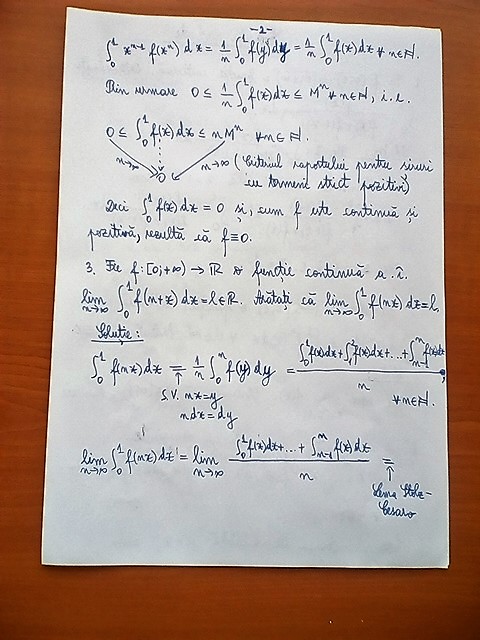 -2-
∫₀¹ xⁿ⁻¹ f(xⁿ) dx = 1/n ∫₀¹ f(y) dy = 1/n ∫₀¹ f(x) dx ∀ n∈ℕ.
Prin urmare 0 ≤ 1/n ∫₀¹ f(x) dx ≤ Mⁿ ∀ n∈ℕ, i.e.
0 ≤ ∫₀¹ f(x) dx ≤ n Mⁿ ∀ n∈ℕ.
n→∞ 0 n→∞ (Criteriul raportului pentru șiruri
cu termeni strict pozitivi)
Deci ∫₀¹ f(x) dx = 0 și, cum f este continuă și
pozitivă, rezultă că f≡0.
3. Fie f:[0;+∞) → ℝ o funcție continuă a.î.
lim n→∞ ∫₀¹ f(n+x) dx = l∈ℝ. Arătați că lim n→∞ ∫₀¹ f(nx) dx = l.
Soluție:
∫₀¹ f(nx) dx = 1/n ∫₀ⁿ f(y) dy = (∫₀¹ f(x)dx + ∫₁² f(x)dx + ... + ∫ₙ₋₁ⁿ f(x)dx) / n,
↑
S.V. nx=y ∀ n∈ℕ.
ndx = dy
lim n→∞ ∫₀¹ f(nx) dx = lim n→∞ (∫₀¹ f(x)dx + ... + ∫ₙ₋₁ⁿ f(x) dx) / n =
↑
Lema Stolz-
Cesaro